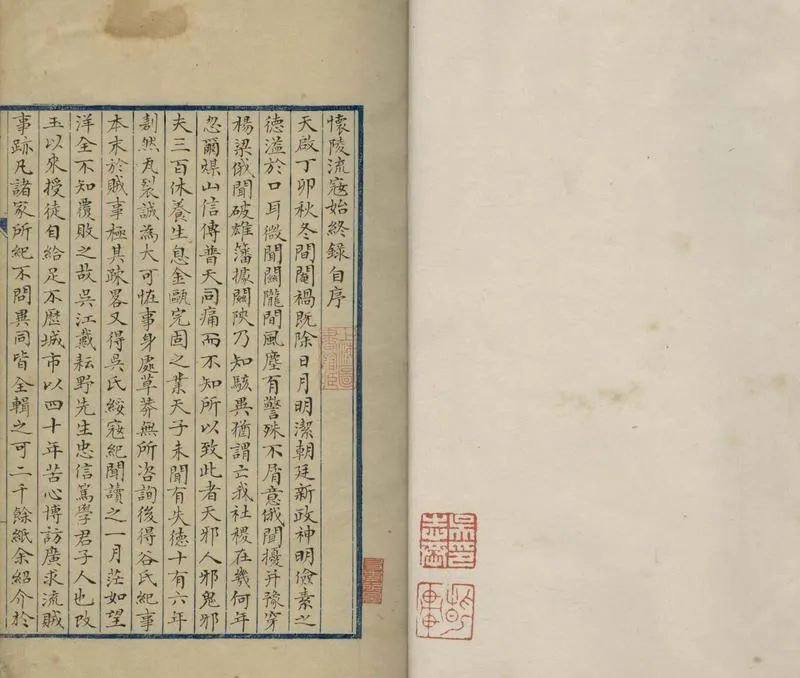 懷陵流寇始終錄自序
天啟丁卯秋冬間閹禍既除日月明潔朝廷新政神明儉素之
德溢於口耳微聞關隴間風塵有警殊不屑意俄聞擾并豫穿
楊梁俄聞破雄藩據關陝乃知駭異猶謂亡我社稷在幾何年
忽爾煤山信傳普天同痛而不知所以致此者天邪人邪鬼邪
夫三百休養生息金甌完固之業天子未聞有失德十有六年
割然瓦裂誠為大可恠事身處草莽無所咨詢後得谷氏紀事
本末於賊事極其疎畧又得吳氏綏寇紀聞讀之一月茫如望
洋全不知覆敗之故吳江戴耘野先生忠信篤學君子人也改
玉以來授徒自給足不歷城市以四十年苦心博訪廣求流賊
事跡凡諸家所紀不問異同皆全輯之可二千餘紙余紹介於